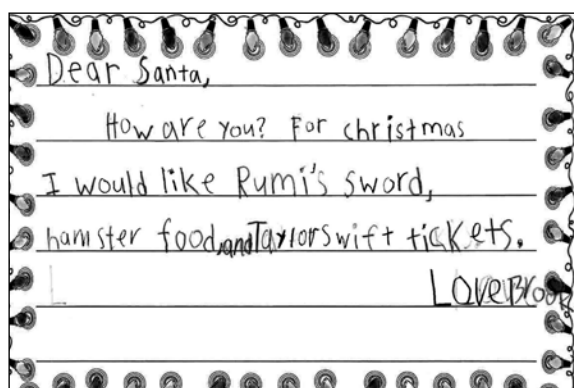 Dear Santa,
How are you? For christmas
I would like Rumi's sword,
hamster food, and Taylor swift tickets.
L
Love Brook